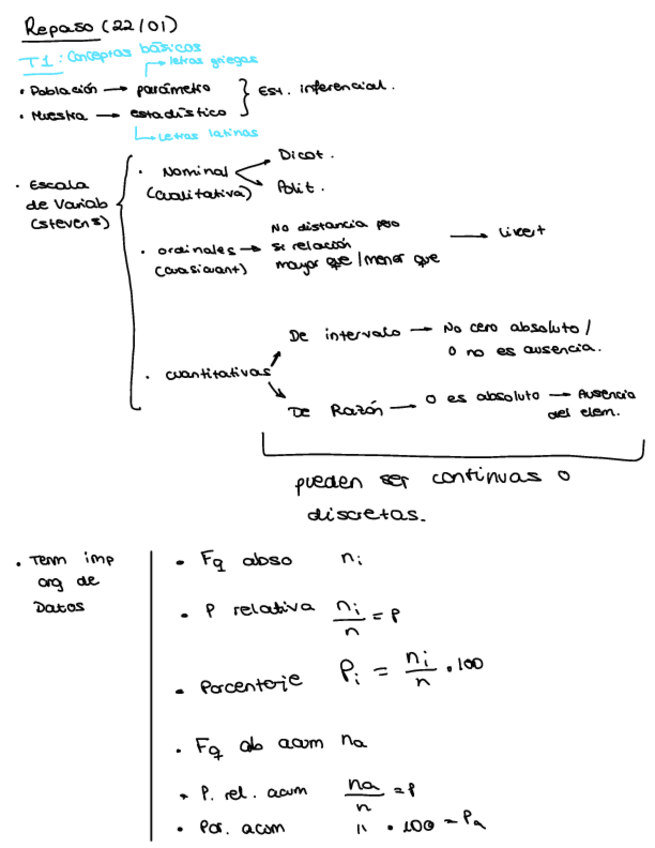 Repaso (22/01)
T1: Conceptos básicos
letras griegas
• Población → parámetro
• Muestra → estadístico
} Est. inferencial.
Letras latinas
• Escala de Variab (Stevens)
• Nominal (cualitativa)
Dicot.
Polit.
• ordinales (cuasicuant) → No distancia pero
si relación
mayor que / menor que
→ Likert
• cuantitativas
De intervalo → No cero absoluto /
0 no es ausencia.
De Razón → 0 es absoluto → Ausencia
del elem.
pueden ser continuas o
discretas.
• Term imp
org de
Datos
• Fq abso ni
• P relativa ni/n = P
• Porcentaje Pi = ni/n . 100
• Fq ab acum na
• P. rel. acum na/n = P
• Por. acum " • 100 = Pa